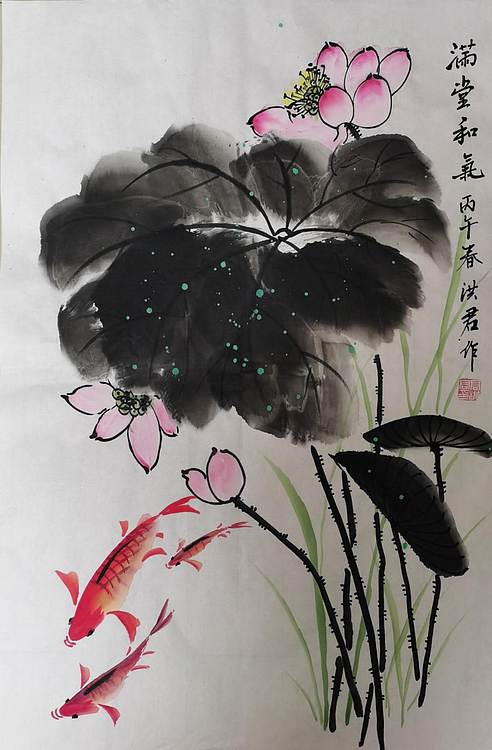 满堂和氣丙午春洪君作